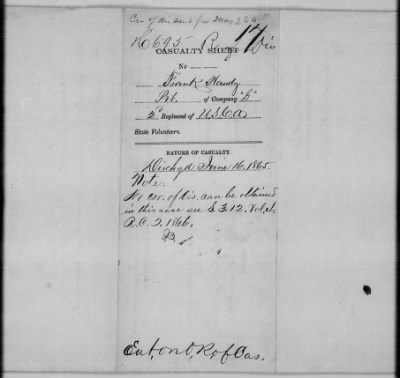 Cer of dis sent for May 26 65
17
E 695
CASUALTY SHEET
No
Frank Handy
Pvt. of Company "G"
2" Regiment of U.S.C.A.
State Volunteers.
NATURE OF CASUALTY.
Dischgd June 16, 1865.
Note.
No cer. of dis. can be obtained
in this case see E 312. Vol. 
R.C. 2. 1866.
Ent. on O. R of Cas.